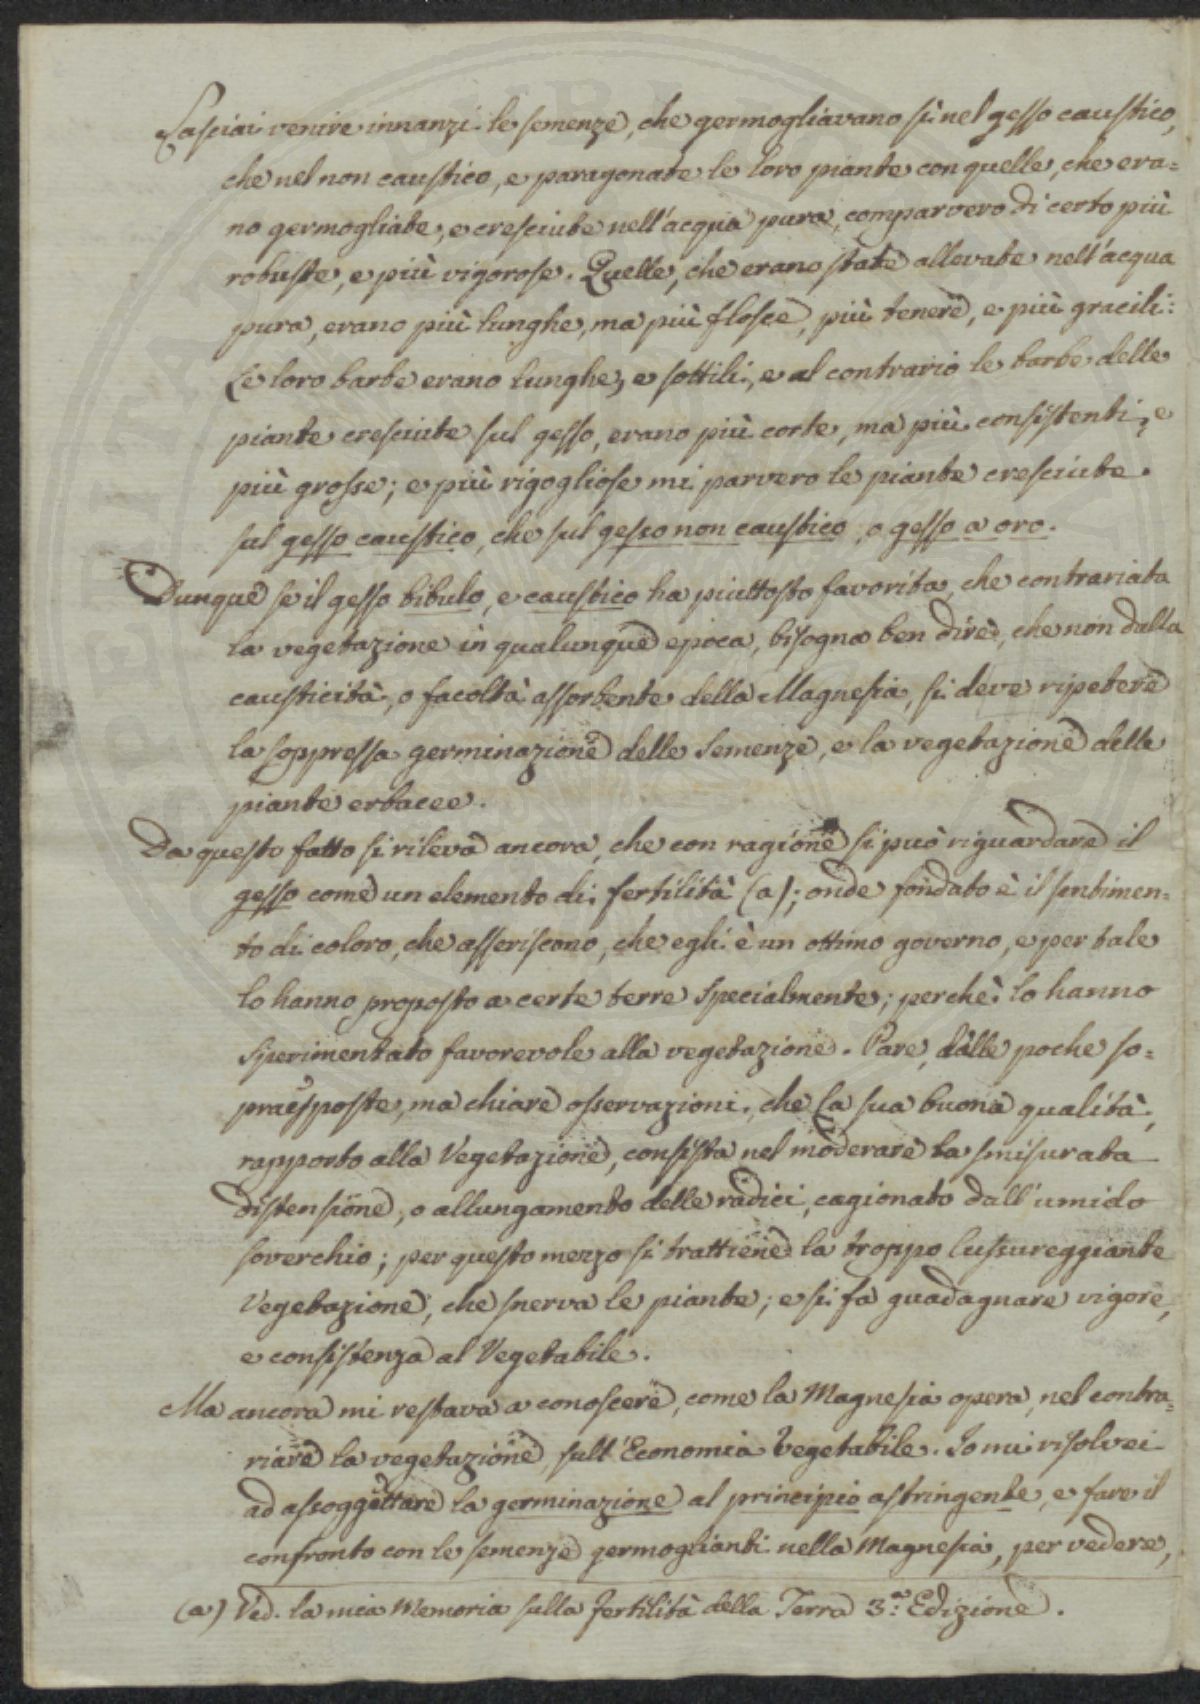 Lasciai venire innanzi le semenze, che germogliavano sì nel gesso caustico,
che nel non caustico, e paragonate le loro piante con quelle, che era=
no germogliate, e cresciute nell'acqua pura, comparvero di certo più
robuste, e più vigorose. Quelle, che erano state allevate nell'acqua
pura, erano più lunghe, ma più flosce, più tenere, e più gracili:
Le loro barbe erano lunghe, e sottili, e al contrario le barbe delle
piante cresciute sul gesso, erano più corte, ma più consistenti, e
più grosse; e più rigogliose mi parvero le piante cresciute
sul gesso caustico, che sul gesso non caustico, o gesso a oro.
Dunque se il gesso bibulo, e caustico ha piuttosto favorita, che contrariata
la vegetazione in qualunque epoca, bisogna ben dire, che non dalla
causticità, o facoltà assorbente della Magnesia, si deve ripetere
la soppressa germinazione delle Semenze, e la vegetazione delle
piante erbacee.
Da questo fatto si rileva ancora, che con ragione si può riguardare il
gesso come un elemento di fertilità (a); onde fondato è il sentimen=
to di coloro, che asseriscono, che egli è un ottimo governo, e per tale
lo hanno proposto a certe terre specialmente; perchè lo hanno
sperimentato favorevole alla vegetazione. Pare, dalle poche so=
praesposte, ma chiare osservazioni, che la sua buona qualità,
rapporto alla Vegetazione, consista nel moderare la smisurata
distensione, o allungamento delle radici, cagionato dall'umido
soverchio; per questo mezzo si trattiene la troppo lussureggiante
Vegetazione, che snerva le piante; e si fa guadagnare vigore,
e consistenza al Vegetabile.
Ma ancora mi restava a conoscere, come la Magnesia opera, nel contra=
riare la vegetazione, sull'Economia Vegetabile. Io mi risolvei
ad assoggettare la germinazione al principio astringente, e fare il
confronto con le semenze germoglianti nella Magnesia, per vedere,
(a) Ved. la mia Memoria sulla fertilità della Terra 3.a Edizione.